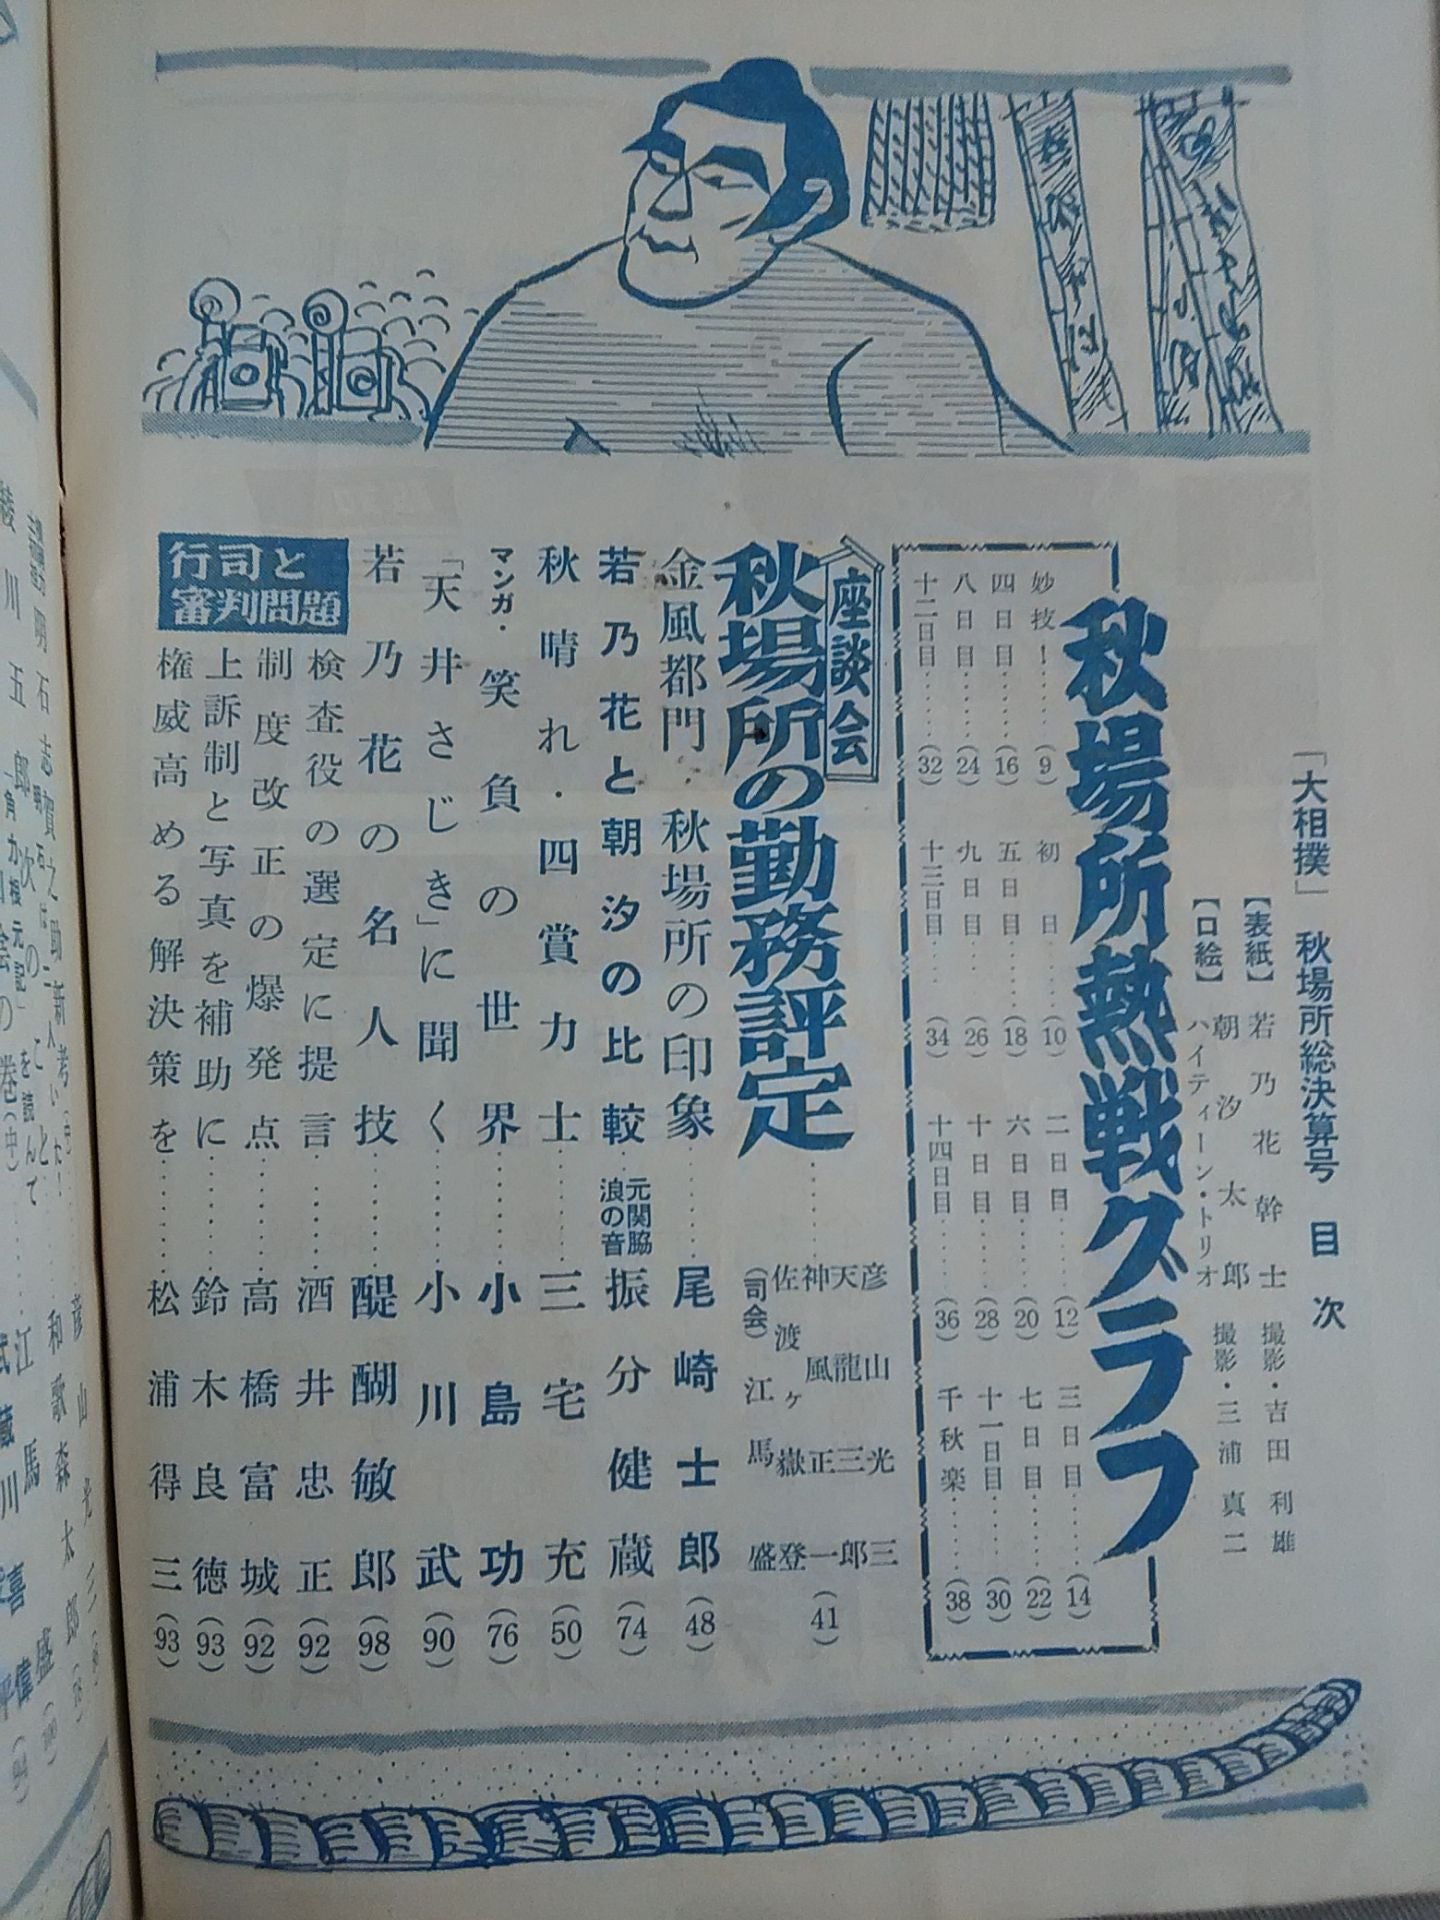 「大相撲」 秋場所総決算号 目次
【表紙】 若乃花幹士 撮影・吉田利雄
【口絵】 朝汐太郎 撮影・三浦真二
ハイティーン・トリオ
秋場所熱戦グラフ
妙技!……(9) 初日……(10) 二日目……(12) 三日目……(14)
四日目……(16) 五日目……(18) 六日目……(20) 七日目……(22)
八日目……(24) 九日目……(26) 十日目……(28) 十一日目……(30)
十二日目……(32) 十三日目……(34) 十四日目……(36) 千秋楽……(38)
座談会
秋場所の勤務評定……(41)
彦山光三
天龍三郎
神風正一
佐渡ヶ嶽登
(司会)江馬盛
金風都門・秋場所の印象……尾崎士郎(48)
若乃花と朝汐の比較……元関脇浪の音 振分健蔵(74)
秋晴れ・四賞力士……三宅充(50)
マンガ・笑負の世界……小島功(76)
「天井さじき」に聞く……小川武(90)
若乃花の名人技……醍醐敏郎(98)
行司と審判問題
検査役の選定に提言……酒井忠正(92)
制度改正の爆発点……高橋富城(92)
上訴制と写真を補助に……鈴木良徳(93)
権威高める解決策を……松浦得三(93)